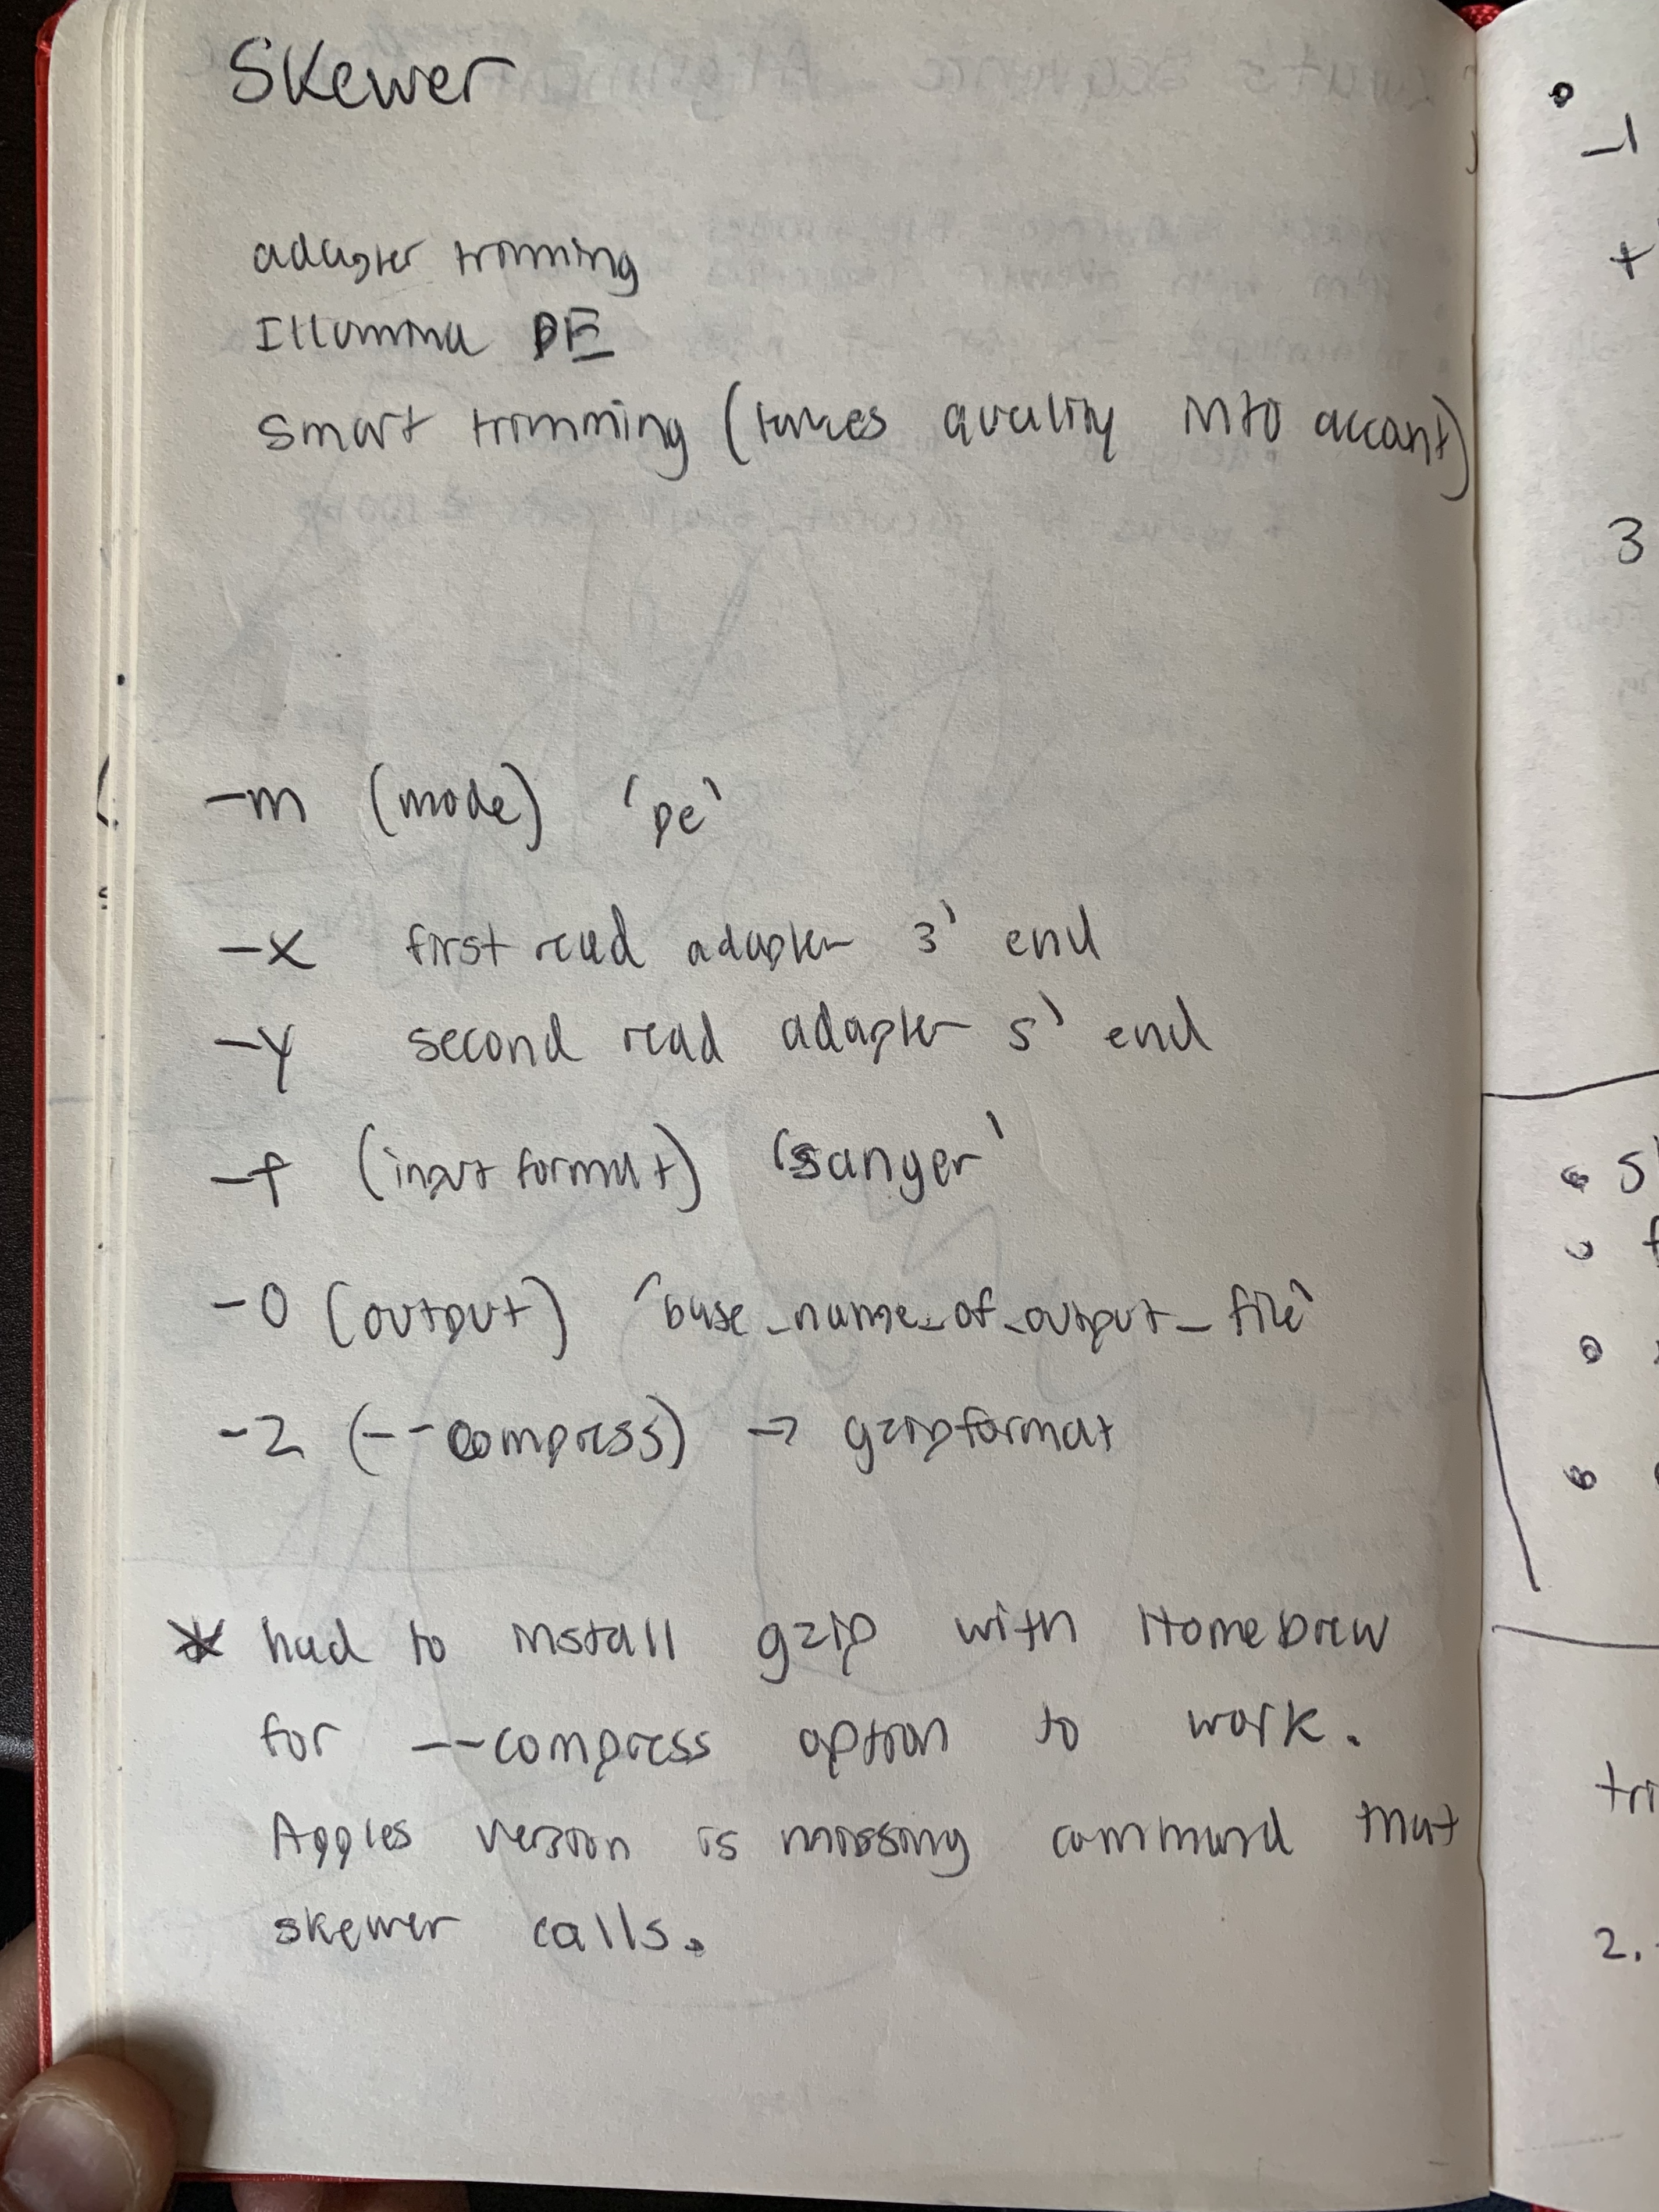 Skewer
adapter trimming
Illumina PE
Smart trimming (takes quality into account)
-m (mode) 'pe'
-x first read adapter 3' end
-y second read adapter 5' end
-f (input format) 'sanger'
-o (output) 'base_name_of_output_file'
-z (--compress) → gzip format
* had to install gzip with Homebrew
for --compress option to work.
Apples version is missing command that
skewer calls.
-1
+
3
tri
2.